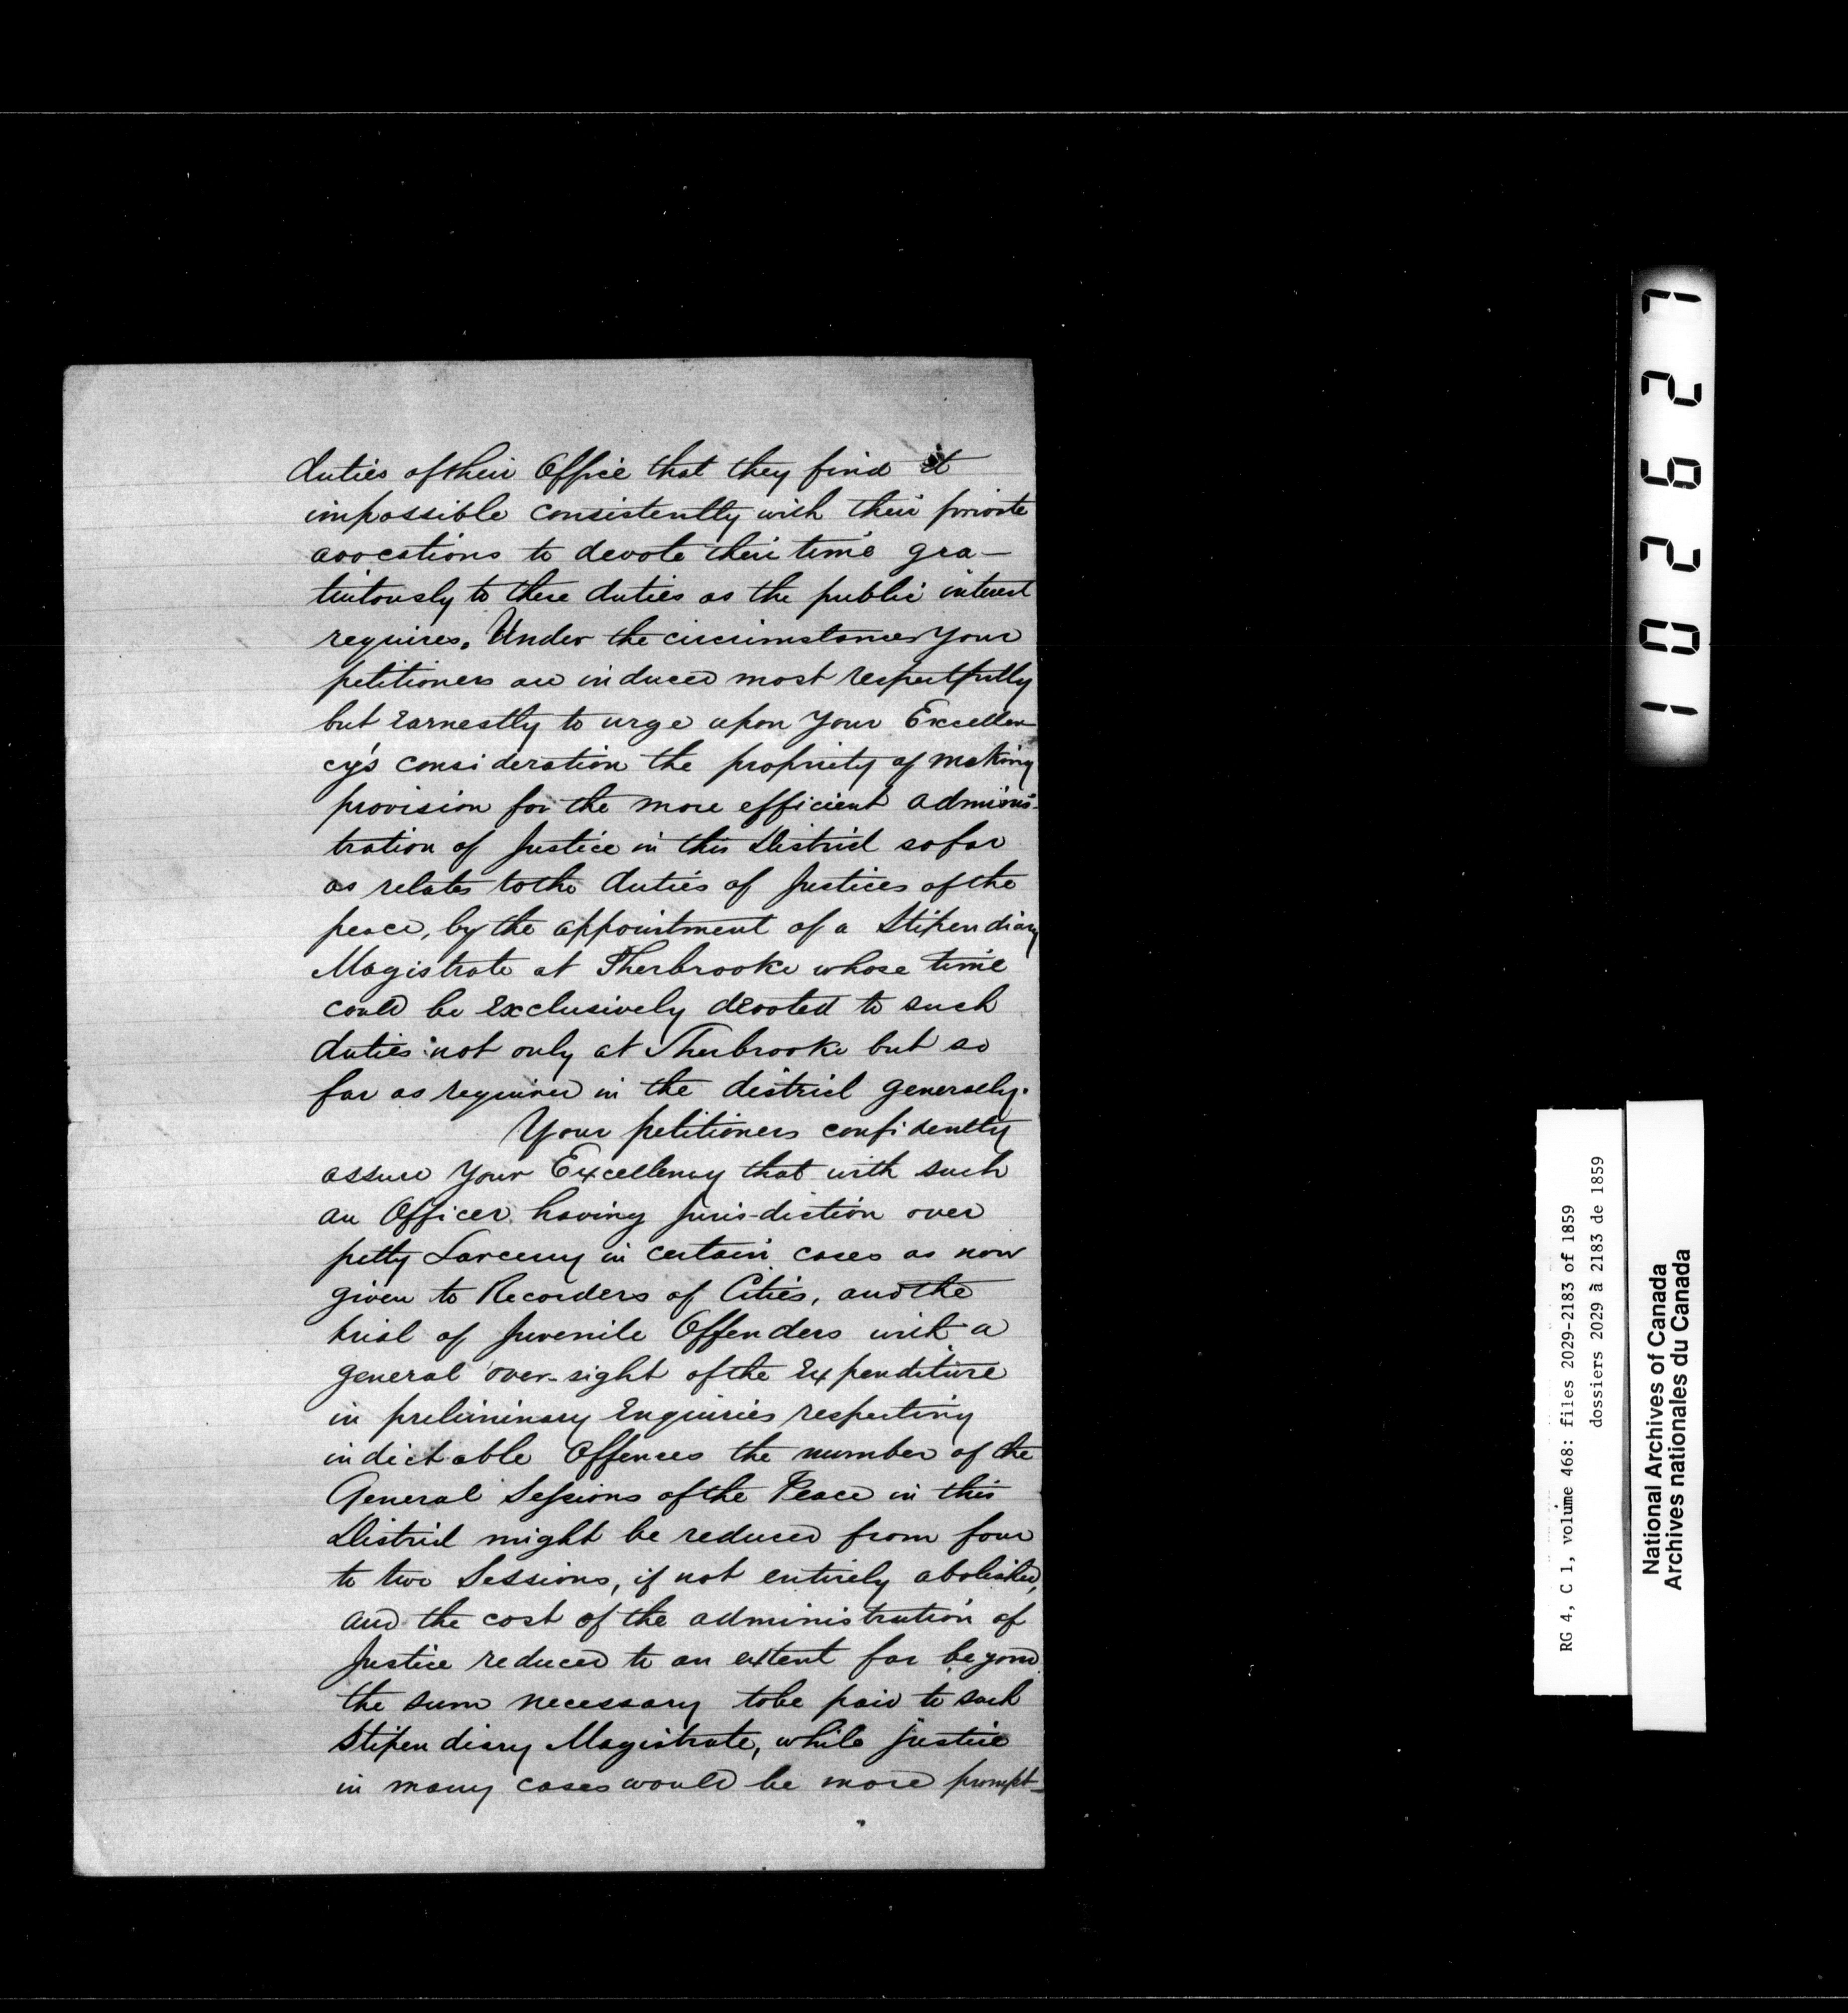 duties of their Office that they find it
impossible consistently with their private
avocations to devote their time gra-
tuitously to these duties as the public interest
requires. Under the circumstances Your
petitioners are induced most respectfully
but earnestly to urge upon Your Excellen-
cy's consideration the propriety of making
provision for the more efficient adminis-
tration of Justice in this District so far
as relates to the duties of Justices of the
peace, by the appointment of a Stipendiary
Magistrate at Sherbrooke whose time
could be exclusively devoted to such
duties not only at Sherbrooke but so
far as required in the district generally.
Your petitioners confidently
assure Your Excellency that with such
an Officer having juris-diction over
petty Larceny in certain cases as now
given to Recorders of Cities, and the
trial of Juvenile Offenders with a
general over-sight of the expenditure
in preliminary Enquiries respecting
indictable Offences the number of the
General Sessions of the Peace in this
District might be reduced from four
to two Sessions, if not entirely abolished,
and the cost of the administration of
Justice reduced to an extent far beyond
the sum necessary to be paid to such
Stipendiary Magistrate, while justice
in many cases would be more prompt-
102627
RG 4, C 1, volume 468: files 2029-2183 of 1859
dossiers 2029 à 2183 de 1859
National Archives of Canada
Archives nationales du Canada